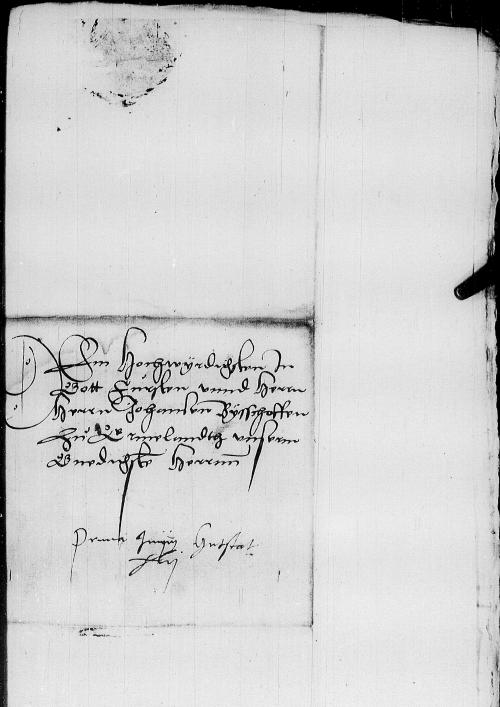 Dem Hochwyrdigsten In
Gott Fürsten unnd Herrn
Herrn Johansen Bysschoffen
Zu Ermelandth unserm
Gnedigste Herrnn
Prima Junij